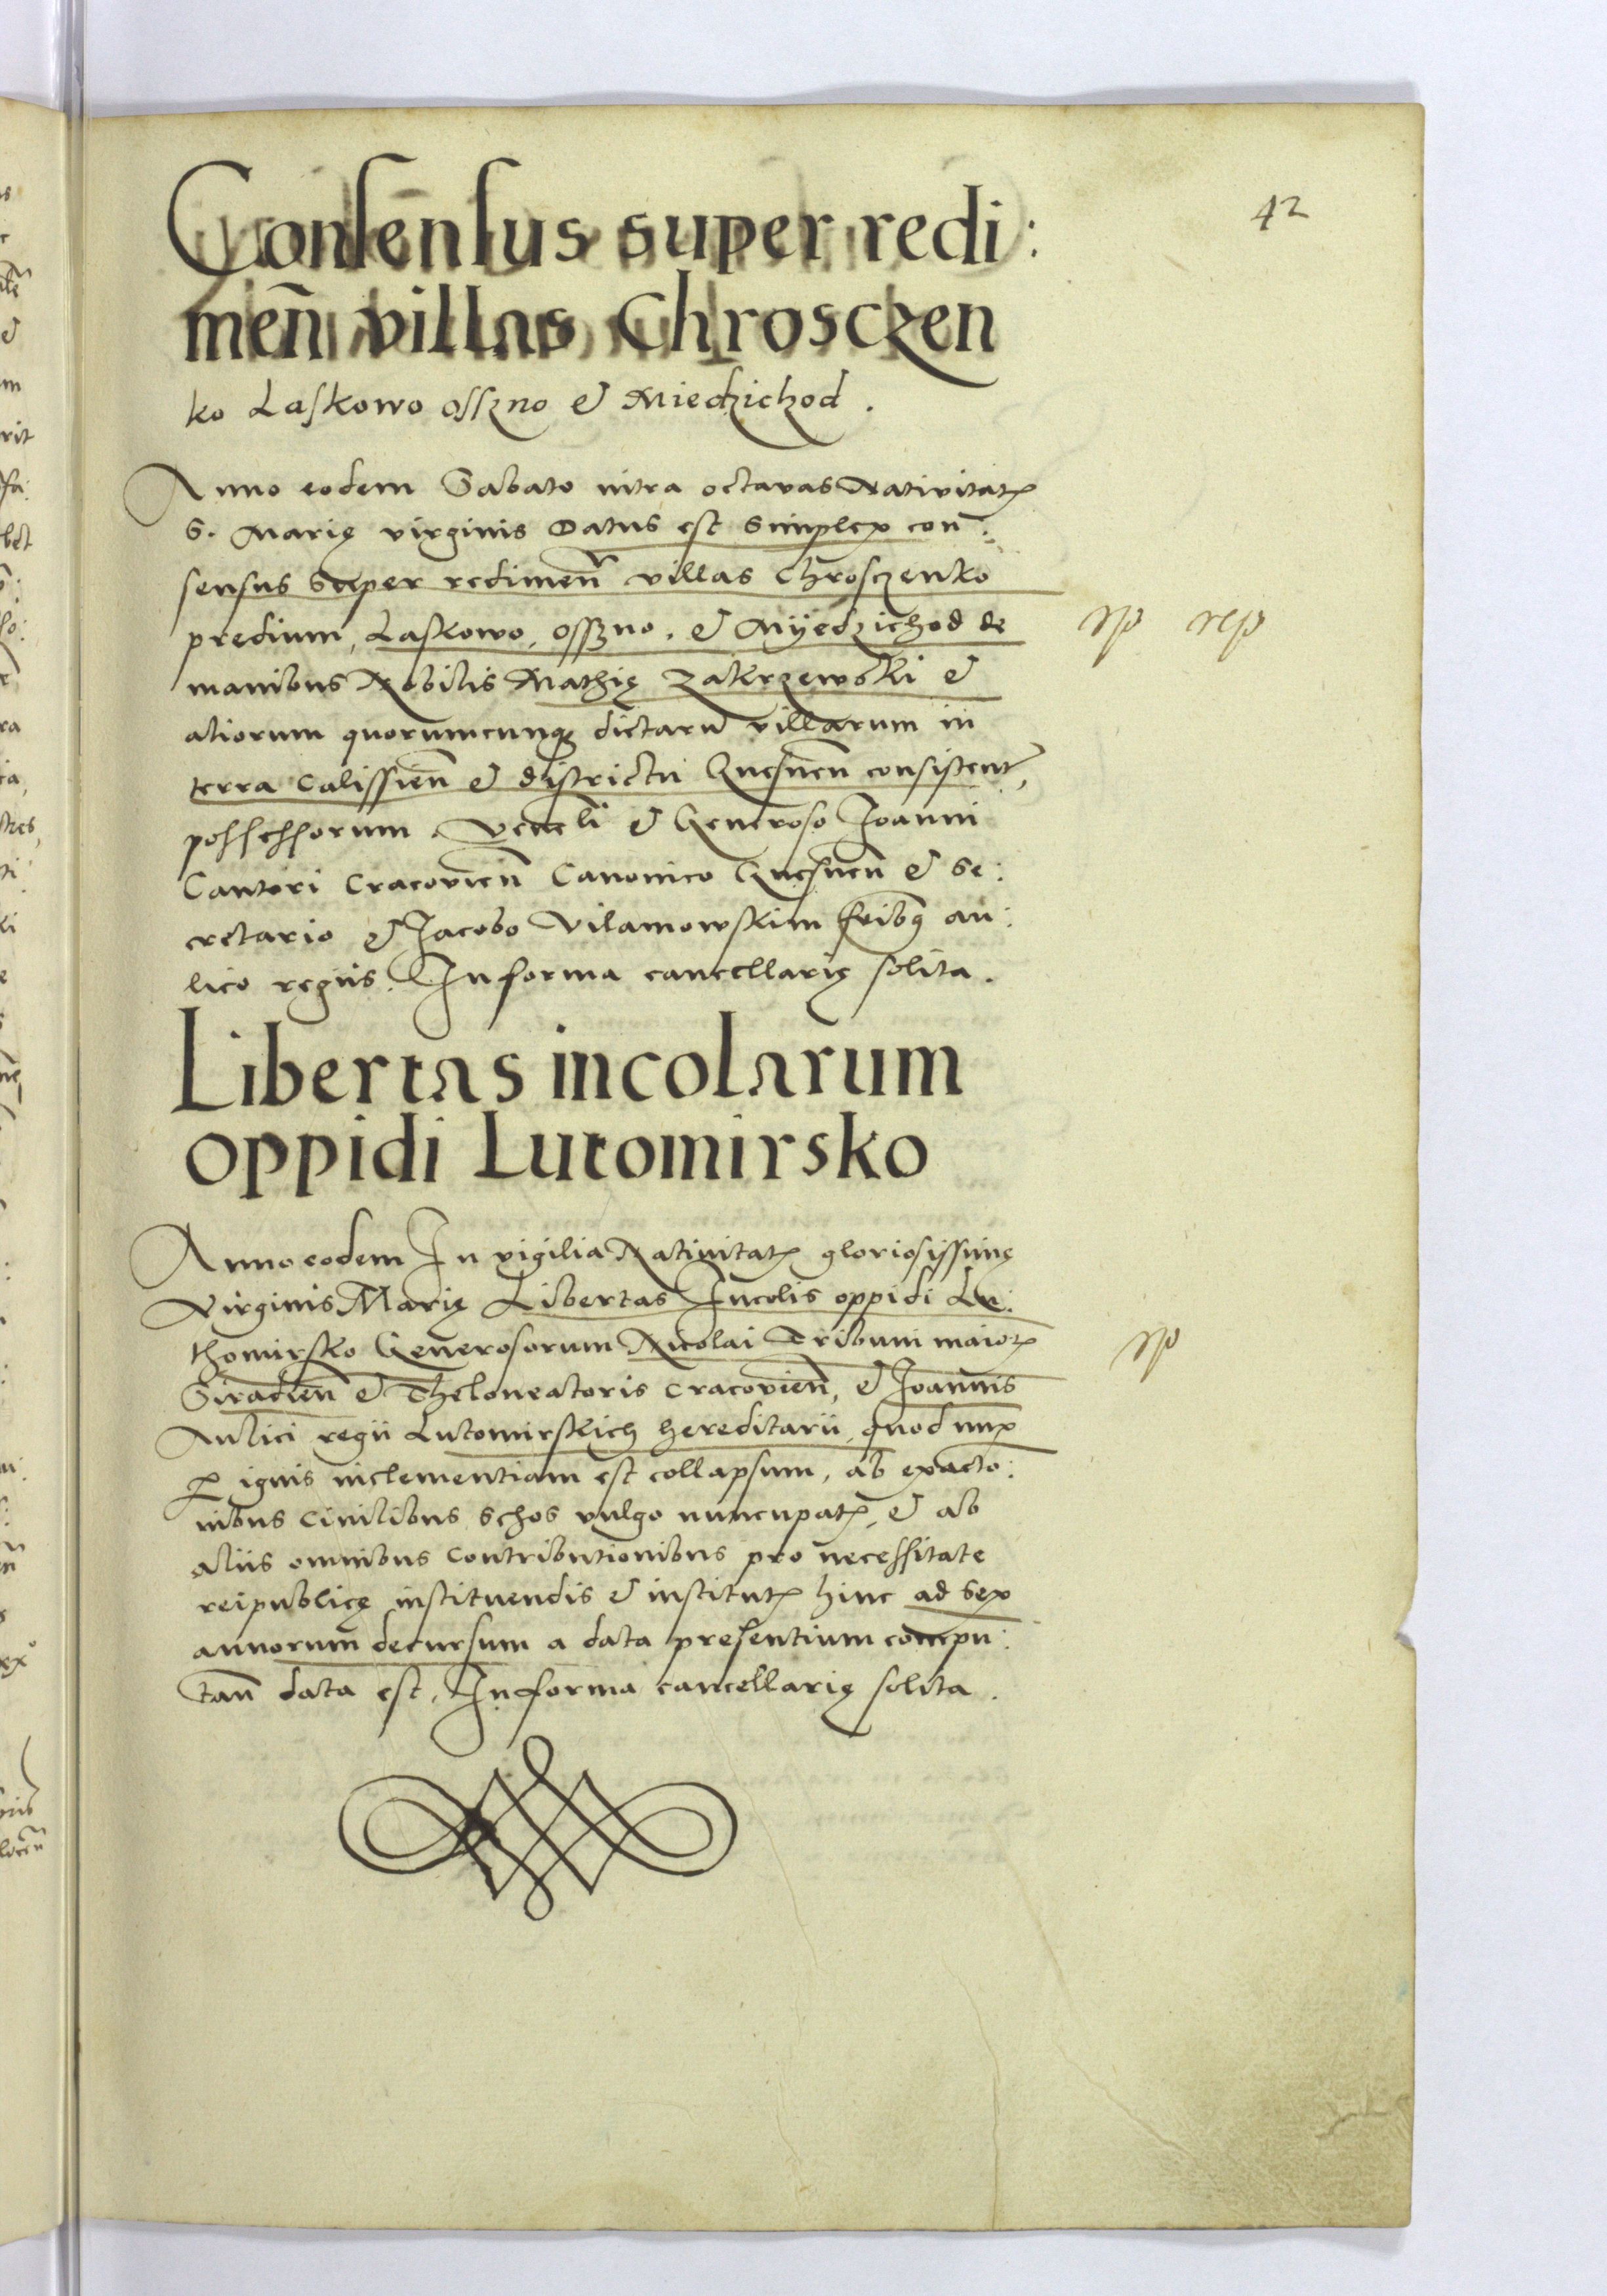 42
Consensus super redi:
men̄ villas Chrosczen
ko Laskowo osszno & Miedzichod.
Anno eodem Sabato intra octavas Nativitatꝭ
S. Marię virginis Datus est simplex con:
sensus super redimen̄ villas Chrosczenko
predium, Laskowo, Osszno, & Mÿedzichod de
manibus Nobilis Mathię Zakrzewski &
aliorum quorumcunqꝫ dictarū villarum in
terra Calissien̄ & districtu Gnesnen̄ consistent̄,
possessorum. Veneli & Generoso Joanni
Cantori Cracovien̄ Canonico Gnesnen̄ & Se:
cretario & Jacobo Vilamowskim fribꝫ au:
lico regiis. In forma cancellarię solita.
Libertas incolarum
oppidi Lutomirsko
Anno eodem In vigilia Nativitatꝭ gloriosissimę
Virginis Marię Libertas Incolis oppidi Lu:
thomirsko Generosorum Nicolai Tribuni maiorꝭ
Siradien̄ & Theloneatoris Cracovien̄, & Joannis
Aulici regii Lutomirskich hereditarii, quod nup
ꝑ ignis inclementiam est collapsum, ab exacto:
nibus Civilibus schos vulgo nuncupatꝭ, & ab
aliis omnibus contributionibus pro necessitate
reipublicę instituendis & institutꝭ hinc ad sex
annorum decursum a data presentium compu:
tan̄ data est, In forma cancellarię solita.